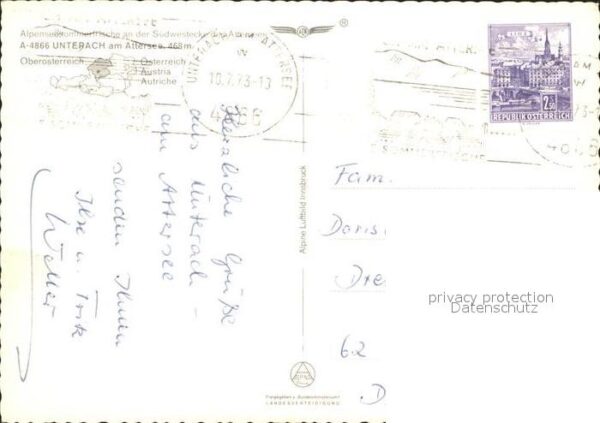 Alpenseesommerfrische an der Südwestecke des Attersees
A-4866 UNTERACH am Attersee, 468m
Oberösterreich
Österreich
Austria
Autriche
UNTERACH AM ATTERSEE
10.7.73-13
4866
LINZ
2.50
REPUBLIK ÖSTERREICH
Herzliche Grüße
aus Unterach
am Attersee
senden Ihnen
Ilse u.
Alpine Luftbild Innsbruck
Fam.
Doris
Dre
62
D
privacy protection
Datenschutz
ALPINE
Freigegeben v. Bundesministerium f.
LANDESVERTEIDIGUNG
®